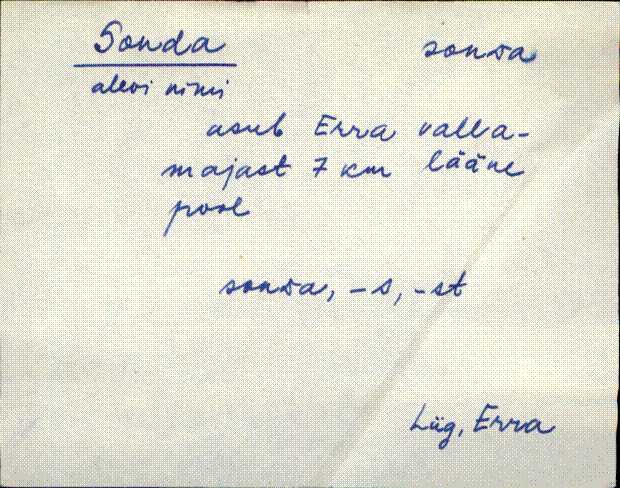 Sonda sonda
alevi nimi
asub Erra valla-
majast 7 km lääne
pool
sonda, -s, -st
Lüg, Erra